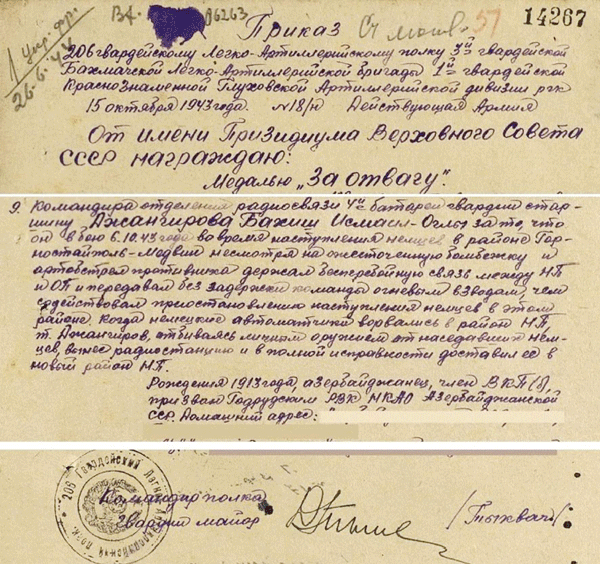 14267
57
26.6.44
Приказ
206 гвардейскому Легко-Артиллерийскому полку 3ей гвардейской
Бахмачской Легко-Артиллерийской бригады 1ой гвардейской
Краснознаменной Глуховской Артиллерийской дивизии РГК
15 октября 1943 года. №18/н Действующая Армия
От имени Призидиума Верховного Совета
СССР награждаю:
Медалью „За отвагу".
9. Командира отделения радиосвязи 4ой баттареи гвардии стар-
шину Джангирова Бахиш Исмаил-Оглы за то, что
он в бою 6.10.43 года во время наступления немцев в районе Гор-
ностайполь-Медвин несмотря на ожесточенную бомбежку и
артобстрел противника держал бесперебойную связь между НП
и ОП и передавал без задержки команды огневым взводам, чем
содействовал приостановлению наступления немцев в этом
районе. Когда немецкие автоматчики ворвались в район НП,
т. Джангиров, отбиваясь личным оружием от наседавших нем-
цев, вынес радиостанцию и в полной исправности доставил ее в
новый район НП.
Рождения 1913 года, азербайджанец, член ВКП(б),
призван Гадрудским РВК НКАО Азербайджанской
ССР. Домашний адрес:
Командир полка
гвардии майор
(Тыквач)